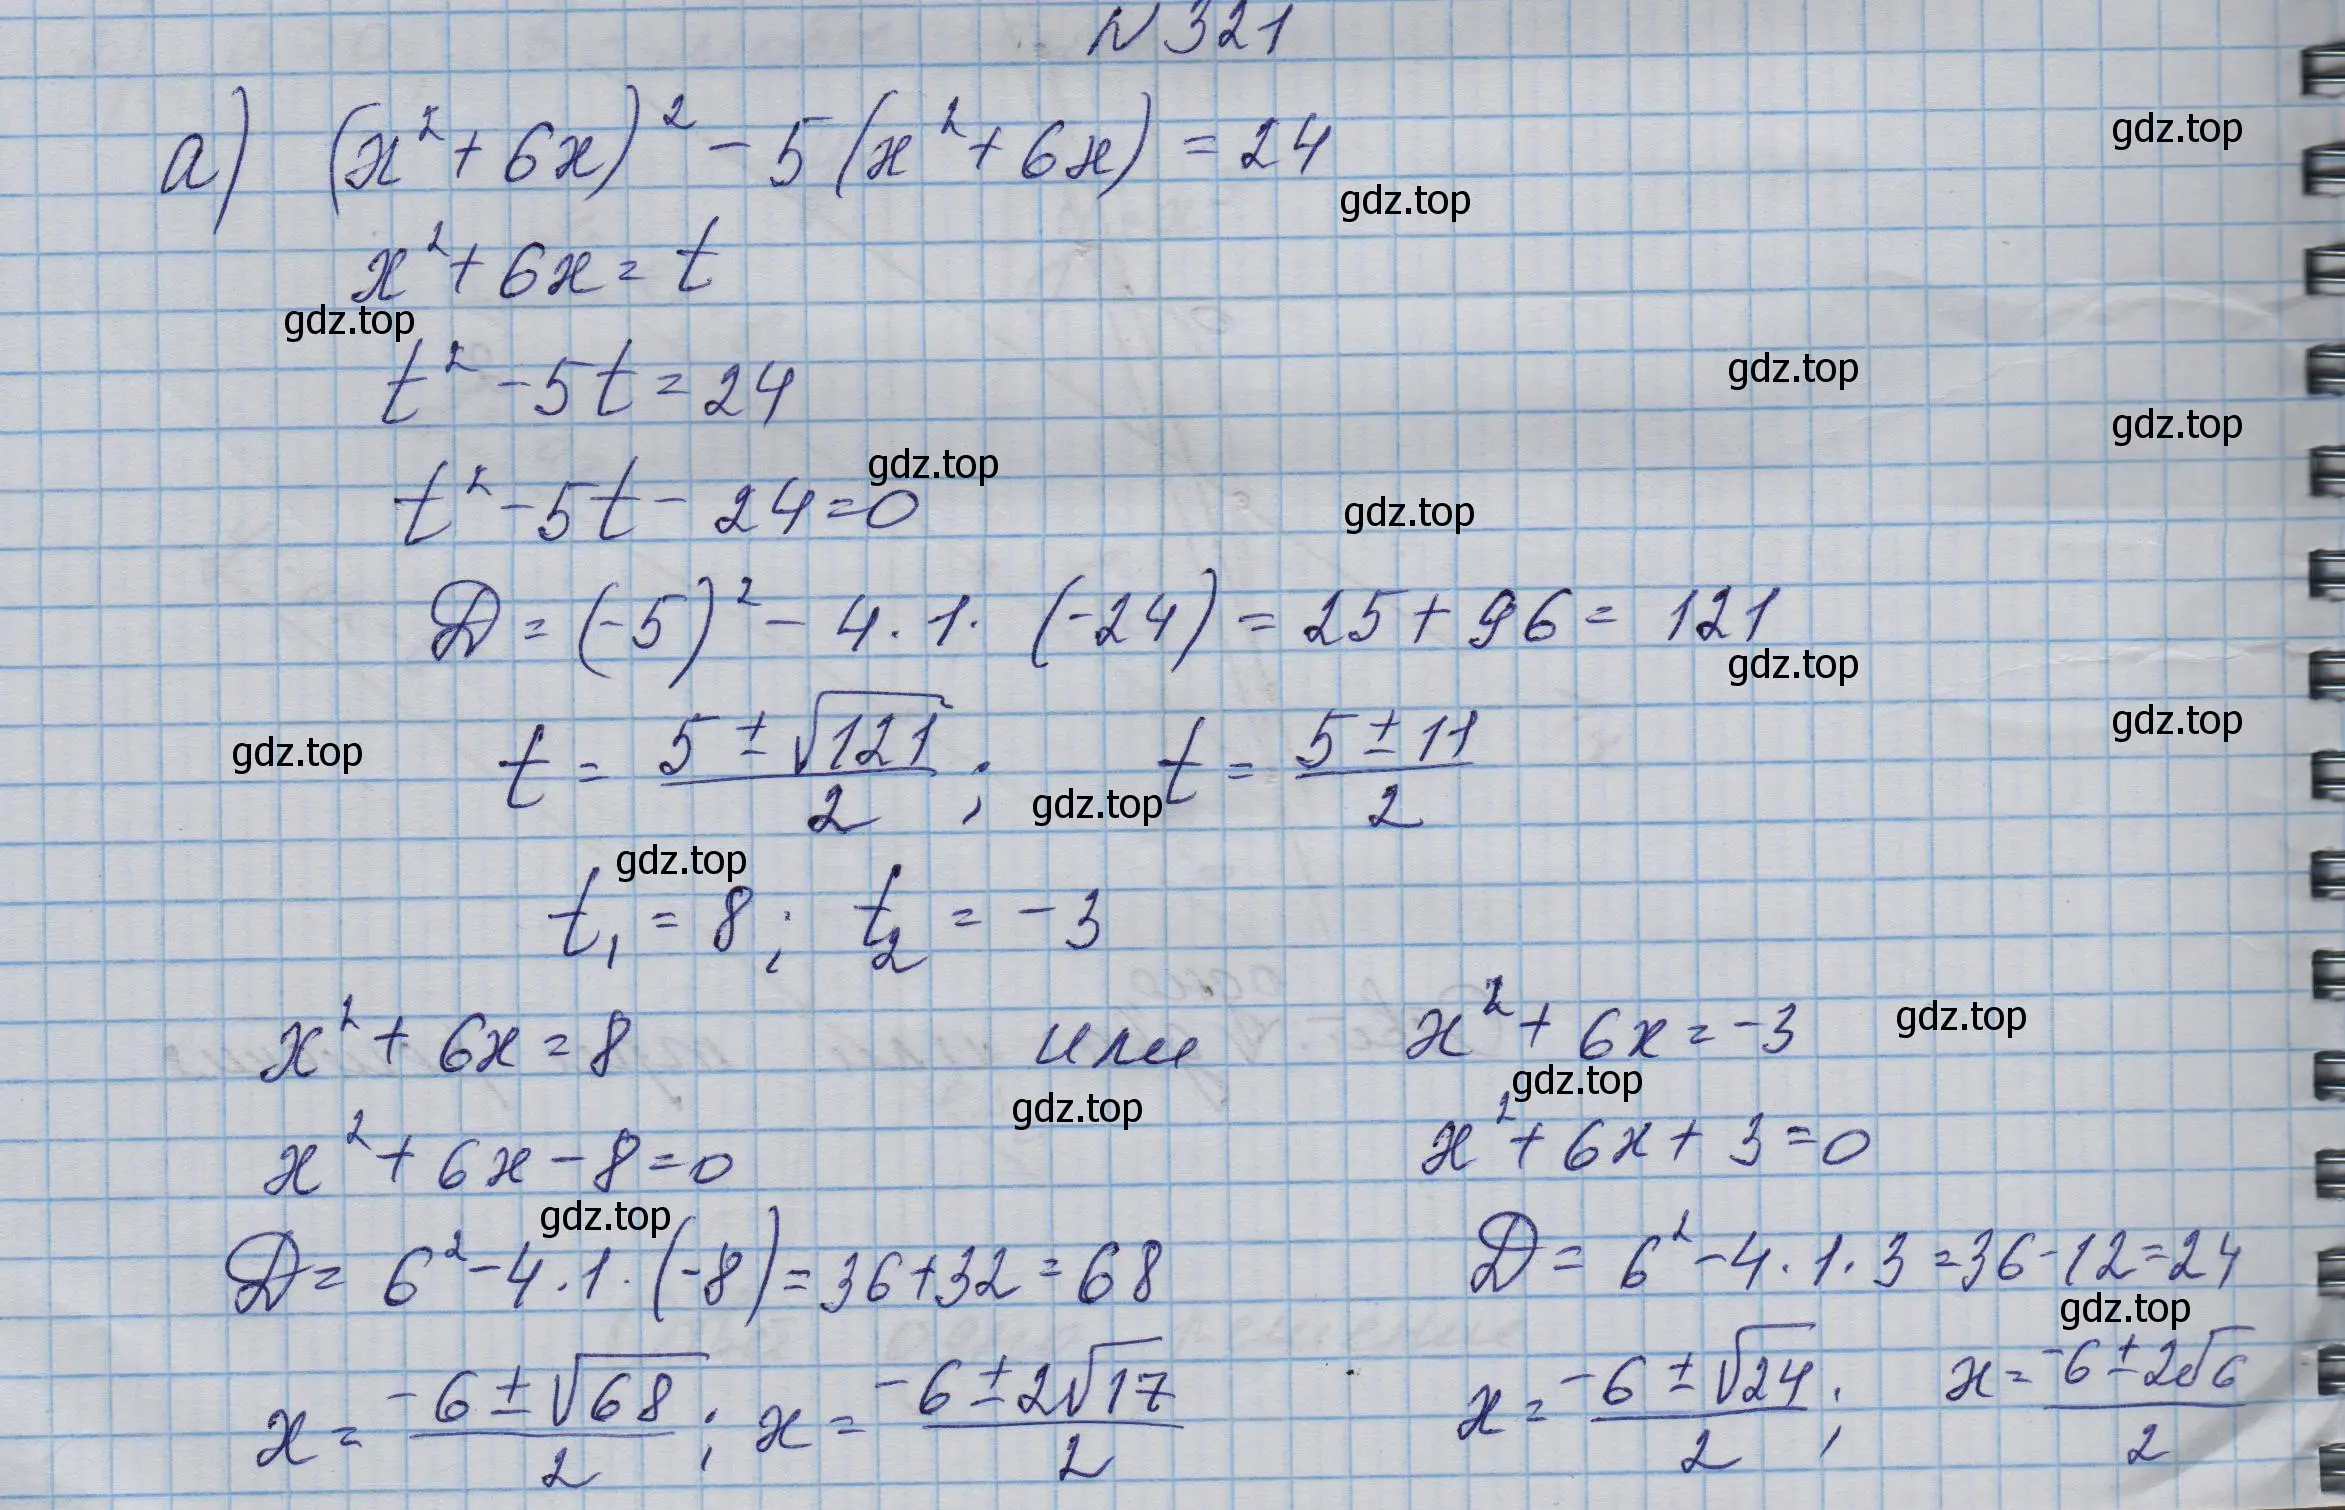 N 321
а) (x² + 6x)² - 5 (x² + 6x) = 24
gdz.top
gdz.top
x² + 6x = t
gdz.top
t² - 5t = 24
gdz.top
gdz.top
t² - 5t - 24 = 0
gdz.top
gdz.top
D = (-5)² - 4 · 1 · (-24) = 25 + 96 = 121
gdz.top
gdz.top
t = (5 ± √121)/2 ; t = (5 ± 11)/2
gdz.top
gdz.top
gdz.top
t₁ = 8 ; t₂ = -3
x² + 6x = 8 или x² + 6x = -3
gdz.top
gdz.top
gdz.top
x² + 6x - 8 = 0 x² + 6x + 3 = 0
gdz.top
D = 6² - 4 · 1 · (-8) = 36 + 32 = 68 D = 6² - 4 · 1 · 3 = 36 - 12 = 24
gdz.top
x = (-6 ± √68)/2 ; x = (-6 ± 2√17)/2 x = (-6 ± √24)/2 ; x = (-6 ± 2√6)/2